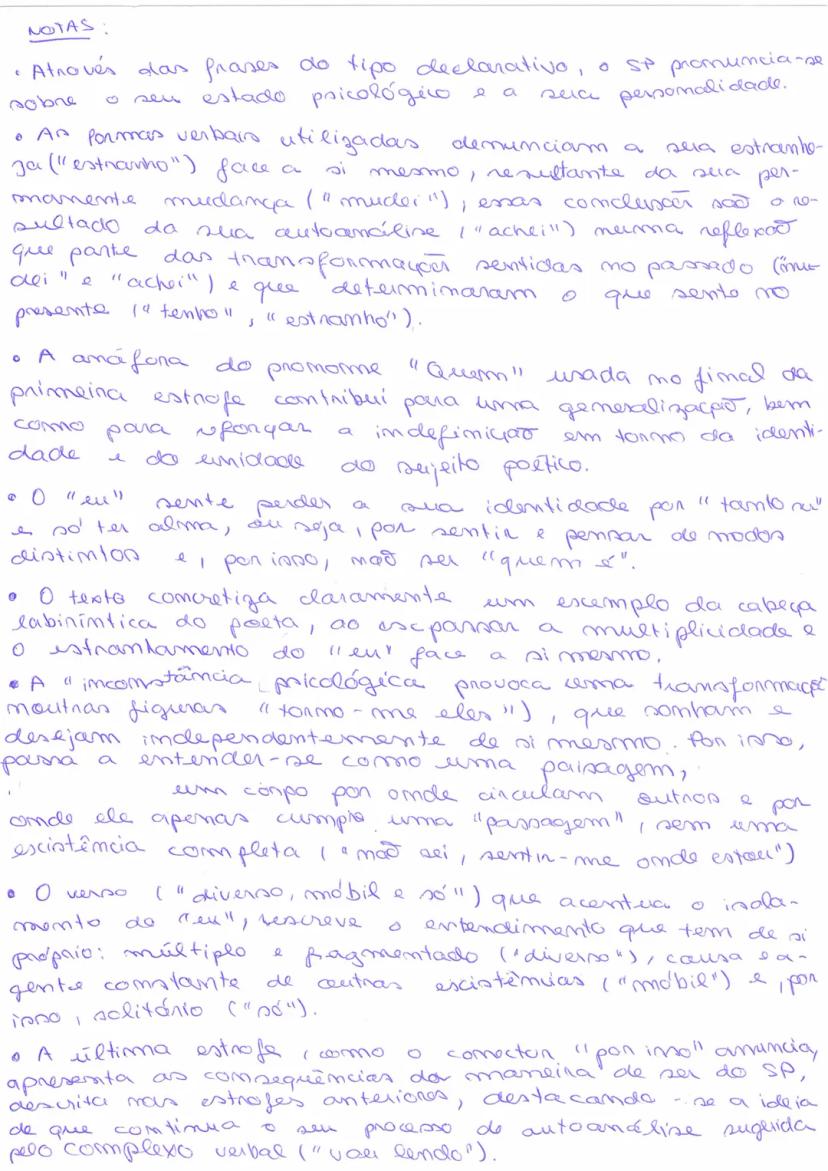 NOTAS:
• Através das frases do tipo declarativo, o SP pronuncia-se
sobre o seu estado psicológico e a sua personalidade.
• As formas verbais utilizadas denunciam a sua estranhe-
za ("estranho") face a si mesmo, resultante da sua per-
manente mudança ("mudei"), essas conclusões são o re-
sultado da sua autoanálise ("achei") numa reflexão
que parte das transformações sentidas no passado ("mu-
dei" e "achei") e que determinaram o que sente no
presente ("tenho", "estranho").
• A anáfora do pronome "Quem" usada no final da
primeira estrofe contribui para uma generalização, bem
como para reforçar a indefinição em torno da identi-
dade e da unidade do sujeito poético.
• O "eu" sente perder a sua identidade por "tanto ser"
e só ter alma, ou seja, por sentir e pensar de modos
distintos e, por isso, não ser "quem é".
• O texto concretiza claramente um exemplo da cabeça
labiríntica do poeta, ao expassar a multiplicidade e
o estranhamento do "eu" face a si mesmo.
• A "inconstância psicológica provoca uma transformação
noutras figuras "torno-me eles"), que sonham e
desejam independentemente de si mesmo. Por isso,
passa a entender-se como uma paisagem,
um corpo por onde circulam outros e por
onde ele apenas cumpre uma "passagem", sem uma
existência completa ("não sei, sentir-me onde estou")
• O verso ("diverso, móbil e só") que acentua o isola-
mento do "eu", descreve o entendimento que tem de si
próprio: múltiplo e fragmentado ("diverso"), causa e a-
gente constante de outras existências ("móbil") e, por
isso, solitário ("só").
• A última estrofe, como o conector "por isso" anuncia,
apresenta as consequências da maneira de ser do SP,
descrita nas estrofes anteriores, destacando-se a ideia
de que continua o seu processo de autoanálise sugerida
pelo complexo verbal ("vou lendo").